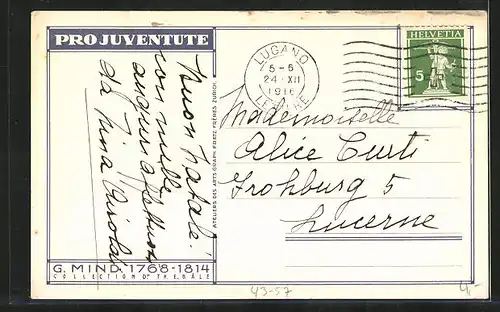 PRO JUVENTUTE
Buon Natale!
con mille
auguri affettuosi
da Nina
G. MIND. 1768-1814
COLLECTION Dr TH. E. BÂLE
ATELIERS DES ARTS GRAPH. FRETZ FRÈRES ZURICH
LUGANO
5-6
24.XII
1916
LETTERE
HELVETIA
5
Mademoiselle
Alice Curti
Frohburg 5
Lucerne
43-57
4,-